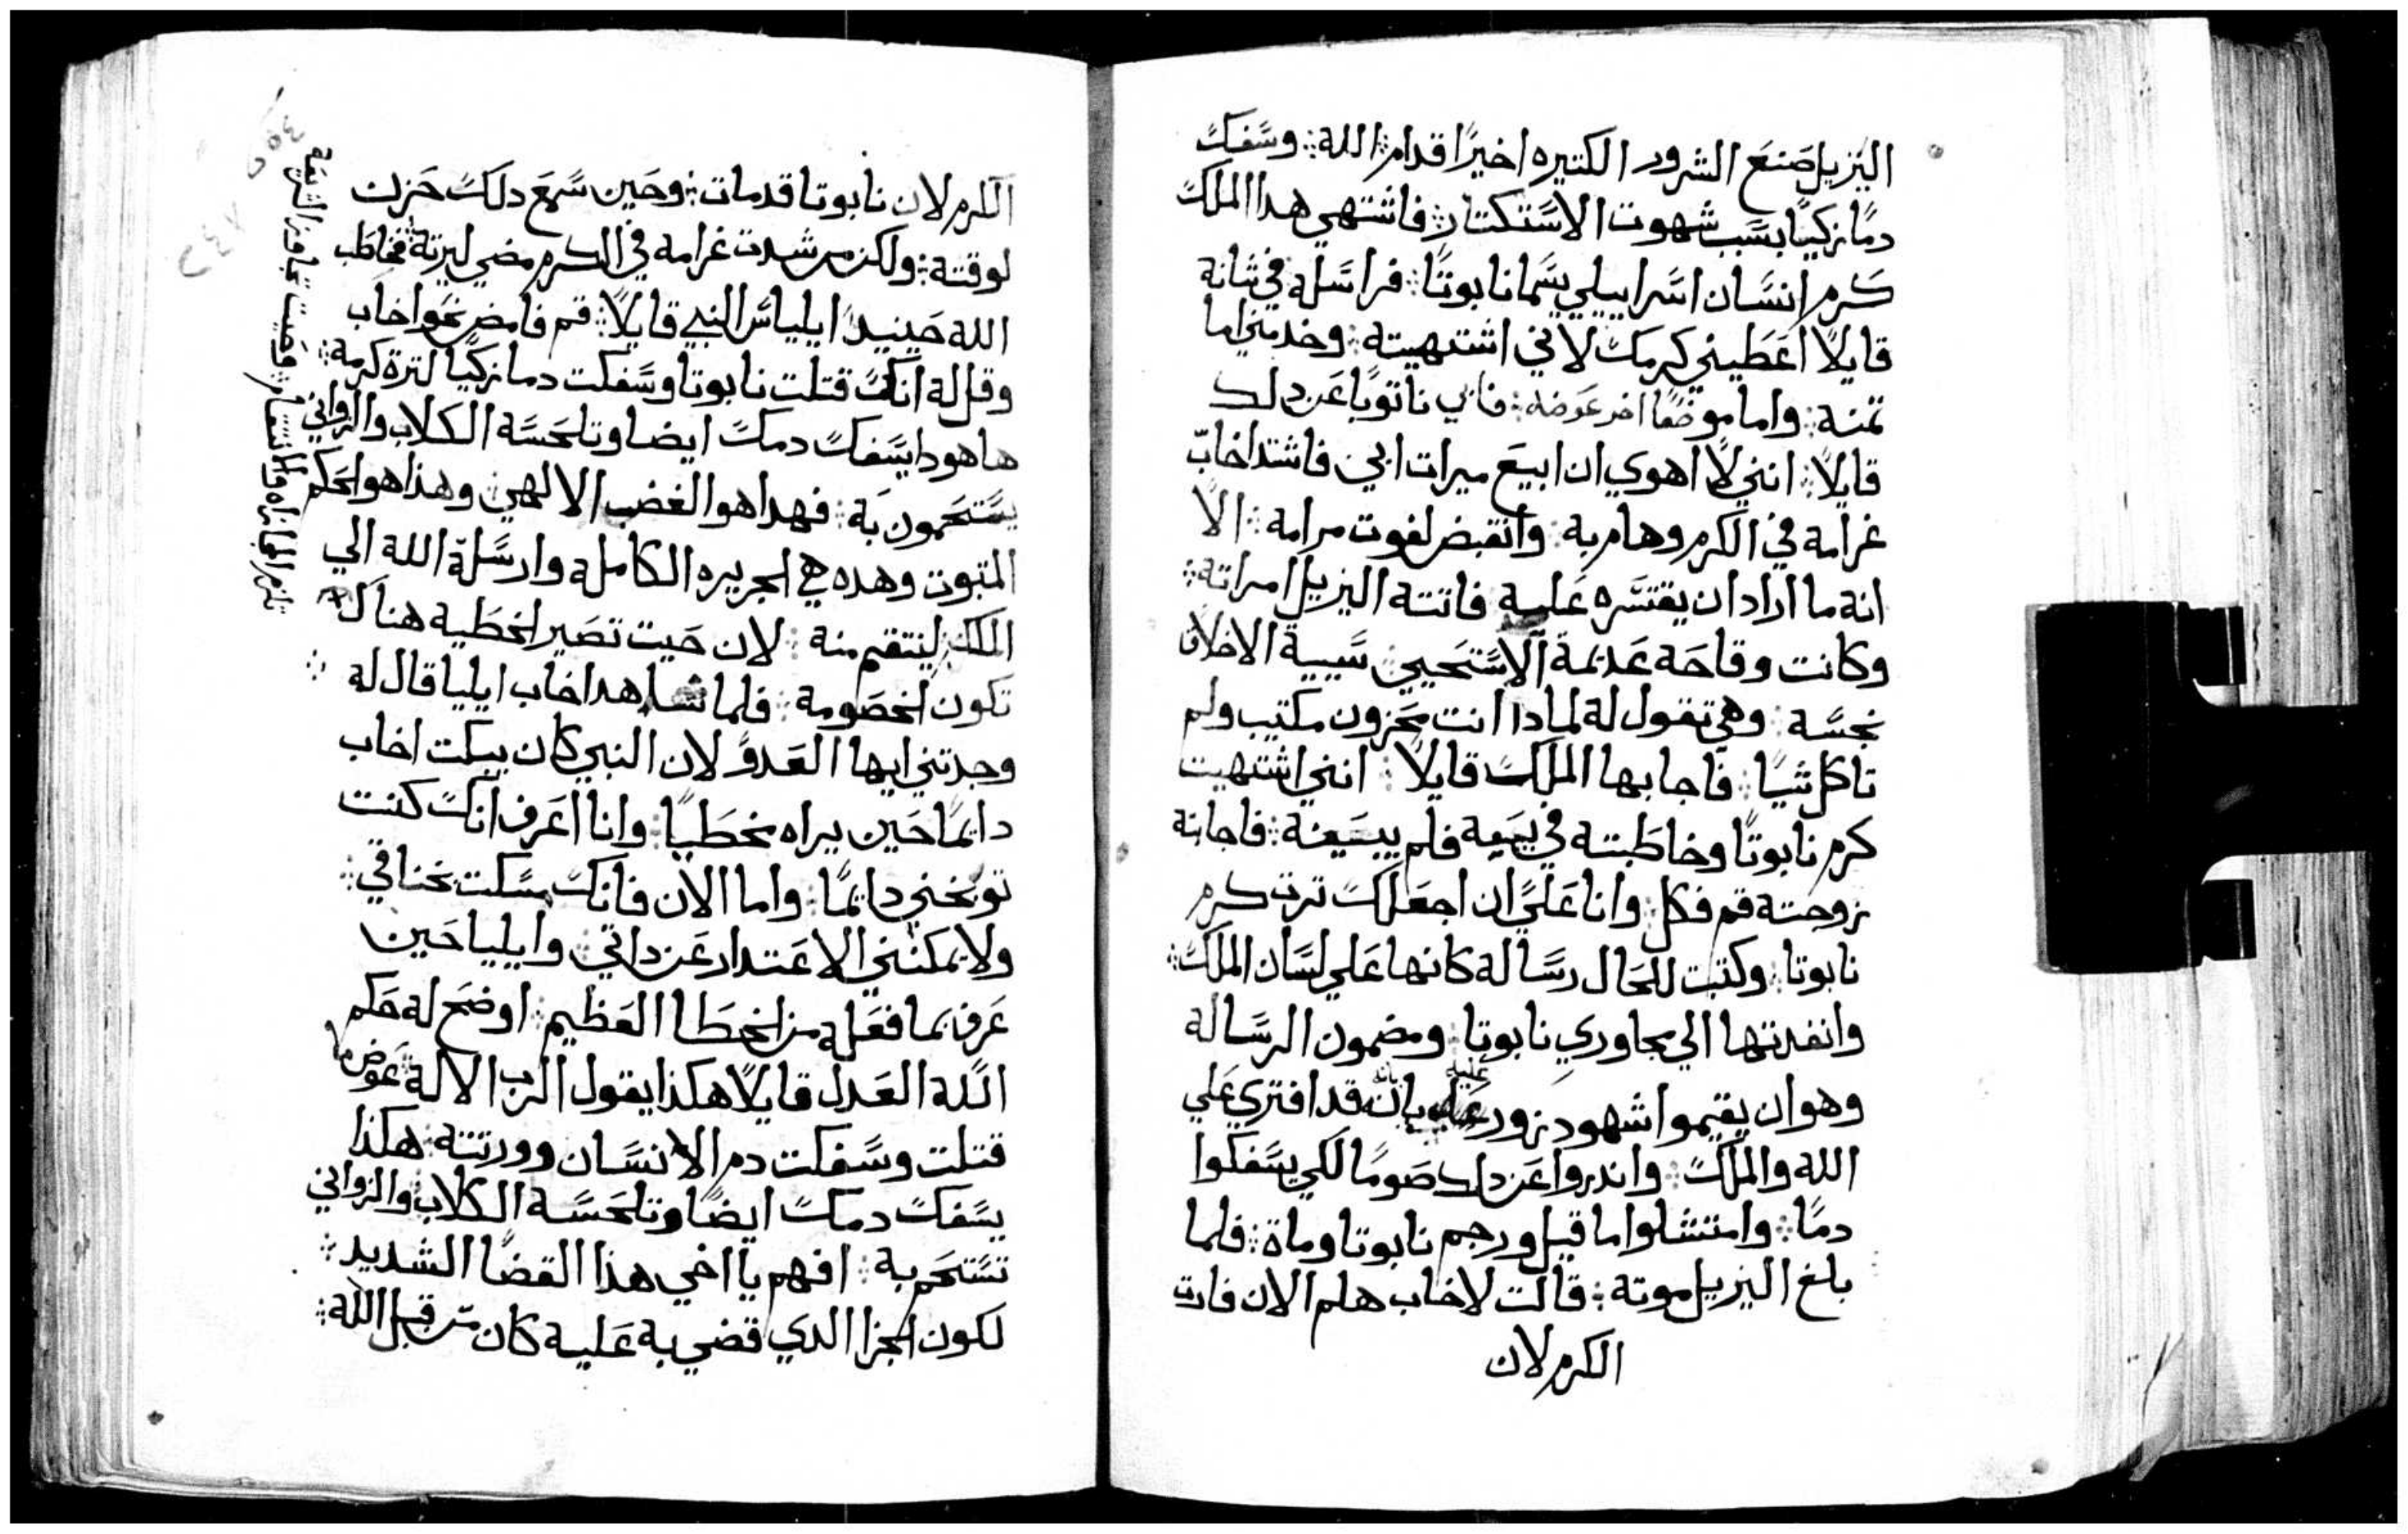 اليزيل صَنعَ الشرور الكتيره اخيرًا قدام الله ؞ وسَفكَ
دمًا زكيًا بسَبب شهوت الاسَتكتار ؞ فاشتهي هدا الملك
كَرم انسَان اسَراييلي يسَما نابوتًا ؞ فراسَله في شانة
قايلاً اعَطيني كرمك لاني اشتهيته ؞ وخد مني اما
تمنة ؞ واما موضعًا اخر عَوضه ؞ فابي ناتوبا عَن دلك
قايلاً ؞ انني لا اهوي ان ابيعَ ميرات ابي فاشتد اخابّ
غرامه في الكرم وهام به ؞ وانقبض لفوت مرامه ؞ الا
انه ما اراد ان يقتسَره عَليه فاتته اليزيل امراته ؞
وكانت وقاحَه عَديمة الاسَتحَيي سَيية الاخلاق
نجسَه ؞ وهي تقول له لمادا انت محَزون مكتيب ولم
تاكل شيًا ؞ فاجابها الملك قايلاً ؞ انني اشتهيت
كرم نابوتًا وخاطَبته في بيعَه فلم يبيعَنة ؞ فاجابته
زوجته قم فكل ؞ وانا عَليَّ ان اجعَلك ترت كرم
نابوتا ؞ وكتبت للحَال رسَالة كانها عَلي لسَان الملك ؞
وانفدتها الي مجاوري نابوتا ؞ ومضمون الرسَالة
وهو ان يقيموا شهود زور عليه بانه قد افتري عَلي
الله والملك ؞ واندروا عَن دلك صَومًا لكي يسَفكوا
دمًا ؞ وامتتلوا ما قيل ورجم نابوتا وماة ؞ فلما
بلغ اليزيل موتة ؞ قالت لاخاب هلم الان فارت
الكرم لان
الكرم لان نابوتا قد مات ؞ وحَين سَمعَ دلك حَزن
لوقتة ؞ ولكن من شدت غرامه في الكرم مضي ليرتة ؞ فخاطَب
الله حَينيدًا ايلياسَ النبي قايلاً ؞ قم فامض نحَو اخاب
وقل له انك قتلت نابوتا وسَفكت دما زكيًا لترة كرمه ؞
ها هودا يسَفك دمك ايضا وتلحَسَه الكلاب والزواني
يسَتحَمون بَة ؞ فهدا هو الغضب الالهي ؞ وهذا هو الحَكم
المتبوت وهده هي الجريره الكامله وارسَلة الله الي
الملك لينتقم منة ؞ لان حَيت تصَير الخطَيه هناك
تكون الخصَومة ؞ فلما شاهد اخاب ايليا قال له ؞
وجدتني ايها العَدوّ لان النبي كان يبكت اخاب
دايمًا حَين يراه مخطَيًا ؞ وانا اعَرف انك كنت
توبخني دايمًا ؞ واما الان فانك مسَكت بخناقي ؞
ولا يمكنني الاعَتدار عَن داتي ؞ وايليا حَين
عَرف بما فعَله من الخطَا العَظيم ؞ اوضحَ له حَكم
الله العَدل قايلاً هكذا يقول الرب الاله ؞ عَوض ما
قتلت وسَفكت دم الانسَان وورتته ؞ هكذا
يسَفك دمك ايضًا وتلحَسَه الكلاب والزواني
تسَتحَم به ؞ افهم يا اخي هذا القضا الشديد ؞
لكون الجزا الدي قضي به عَليه كان من قبل الله ؞